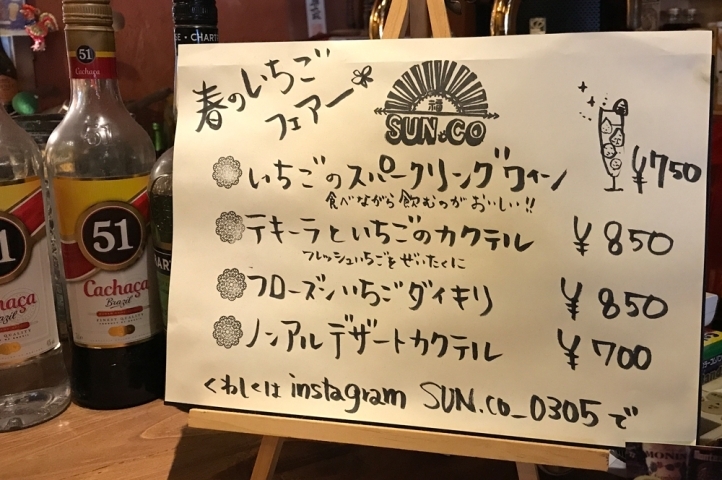 春のいちご
フェアー
SUN.CO
いちごのスパークリングワイン ¥750
食べながら飲むのがおいしい!!
テキーラといちごのカクテル ¥850
フレッシュいちごをぜいたくに
フローズンいちごダイキリ ¥850
ノンアルデザートカクテル ¥700
くわしくは instagram SUN.CO_0305 で
51
Cachaça
51
Cachaça
Brazil
51
CHART